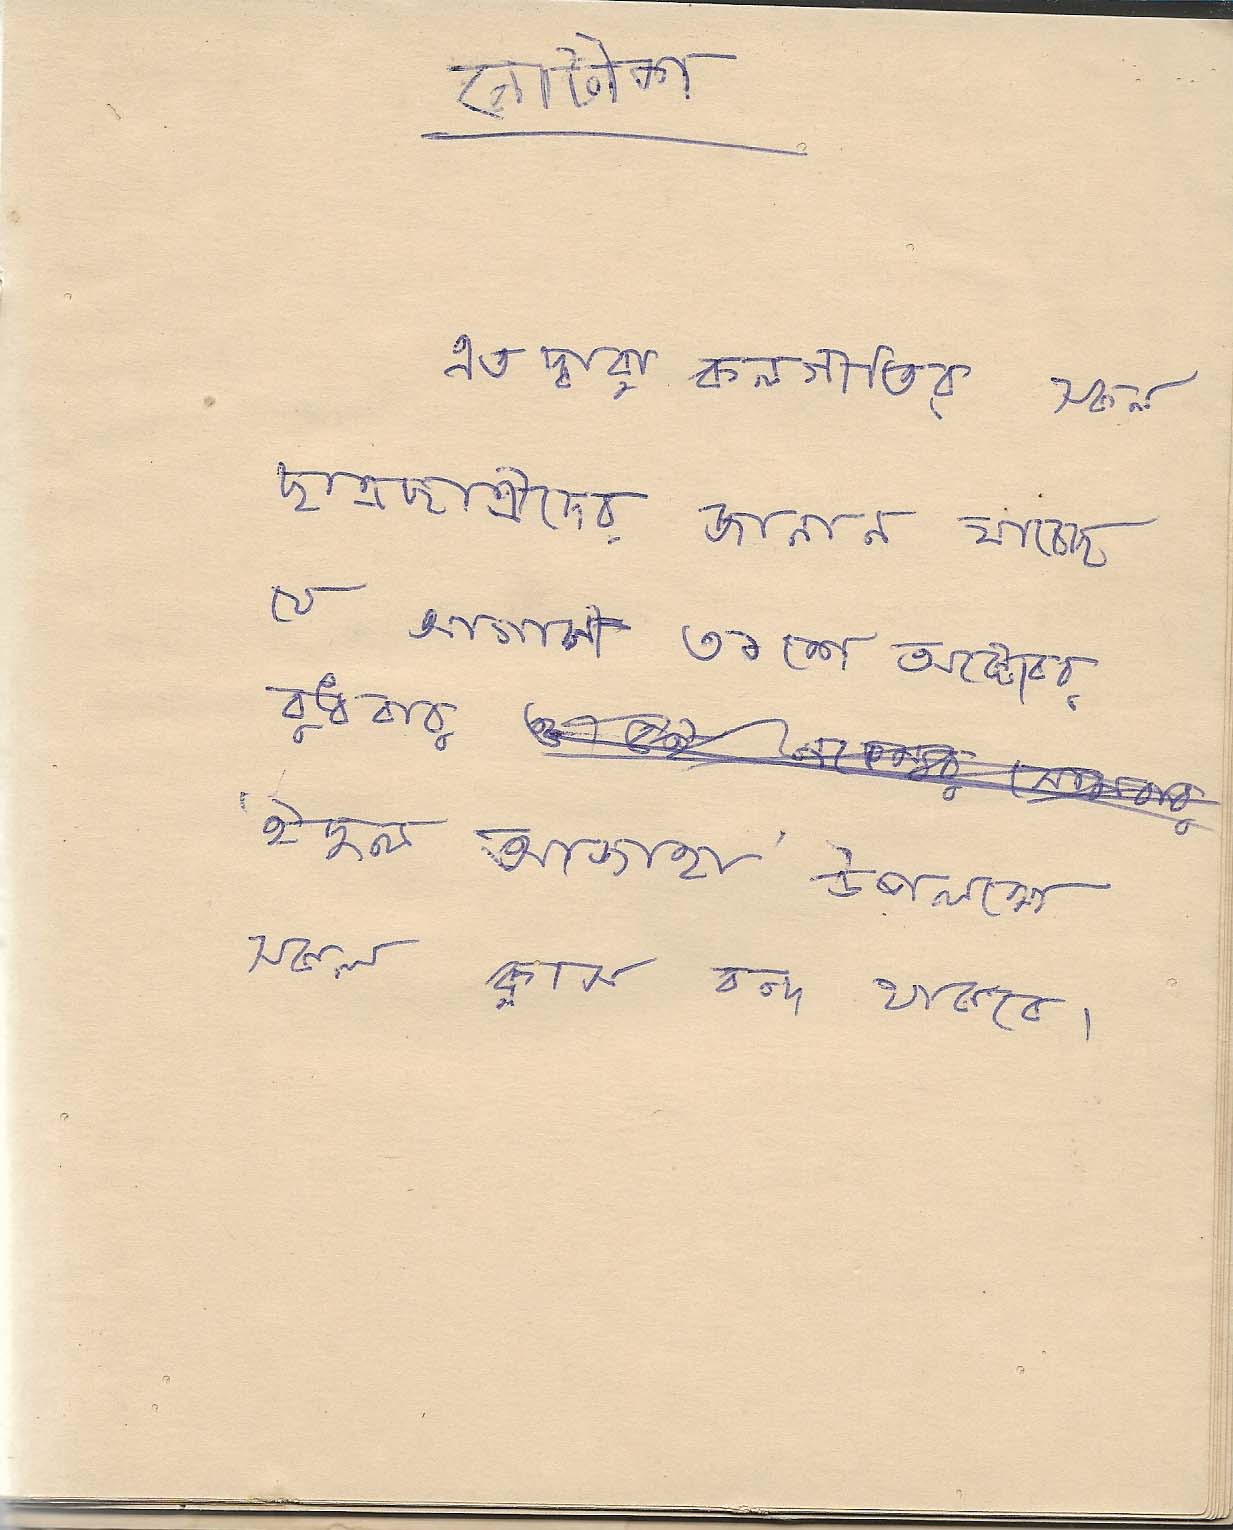 এত দ্বারা কলগীতির সকল
ছাত্রছাত্রীদের জানান যাচ্ছে
যে আগামী ৩১শে অক্টোবর
বুধবার
'ইদুল আজাহা' উপলক্ষে
সকল ক্লাস বন্দ থাকবে।